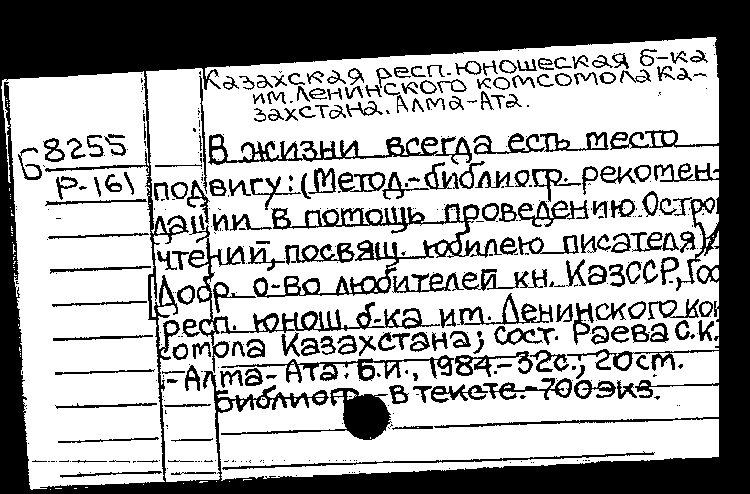 Казахская респ. юношеская б-ка
им. Ленинского комсомола Ка-
захстана. Алма-Ата.
Б 8255
Р-161
В жизни всегда есть место
подвигу: (Метод.-библиогр. рекомен-
дации в помощь проведению Остро
чтений, посвящ. юбилею писателя)/
[Добр. о-во любителей кн. КазССР, Гос
респ. юнош. б-ка им. Ленинского ком
сомола Казахстана; сост. Раева С.К.
-Алма-Ата: Б.и., 1984.-32с.; 20см.
Библиогр. в тексте.-700экз.